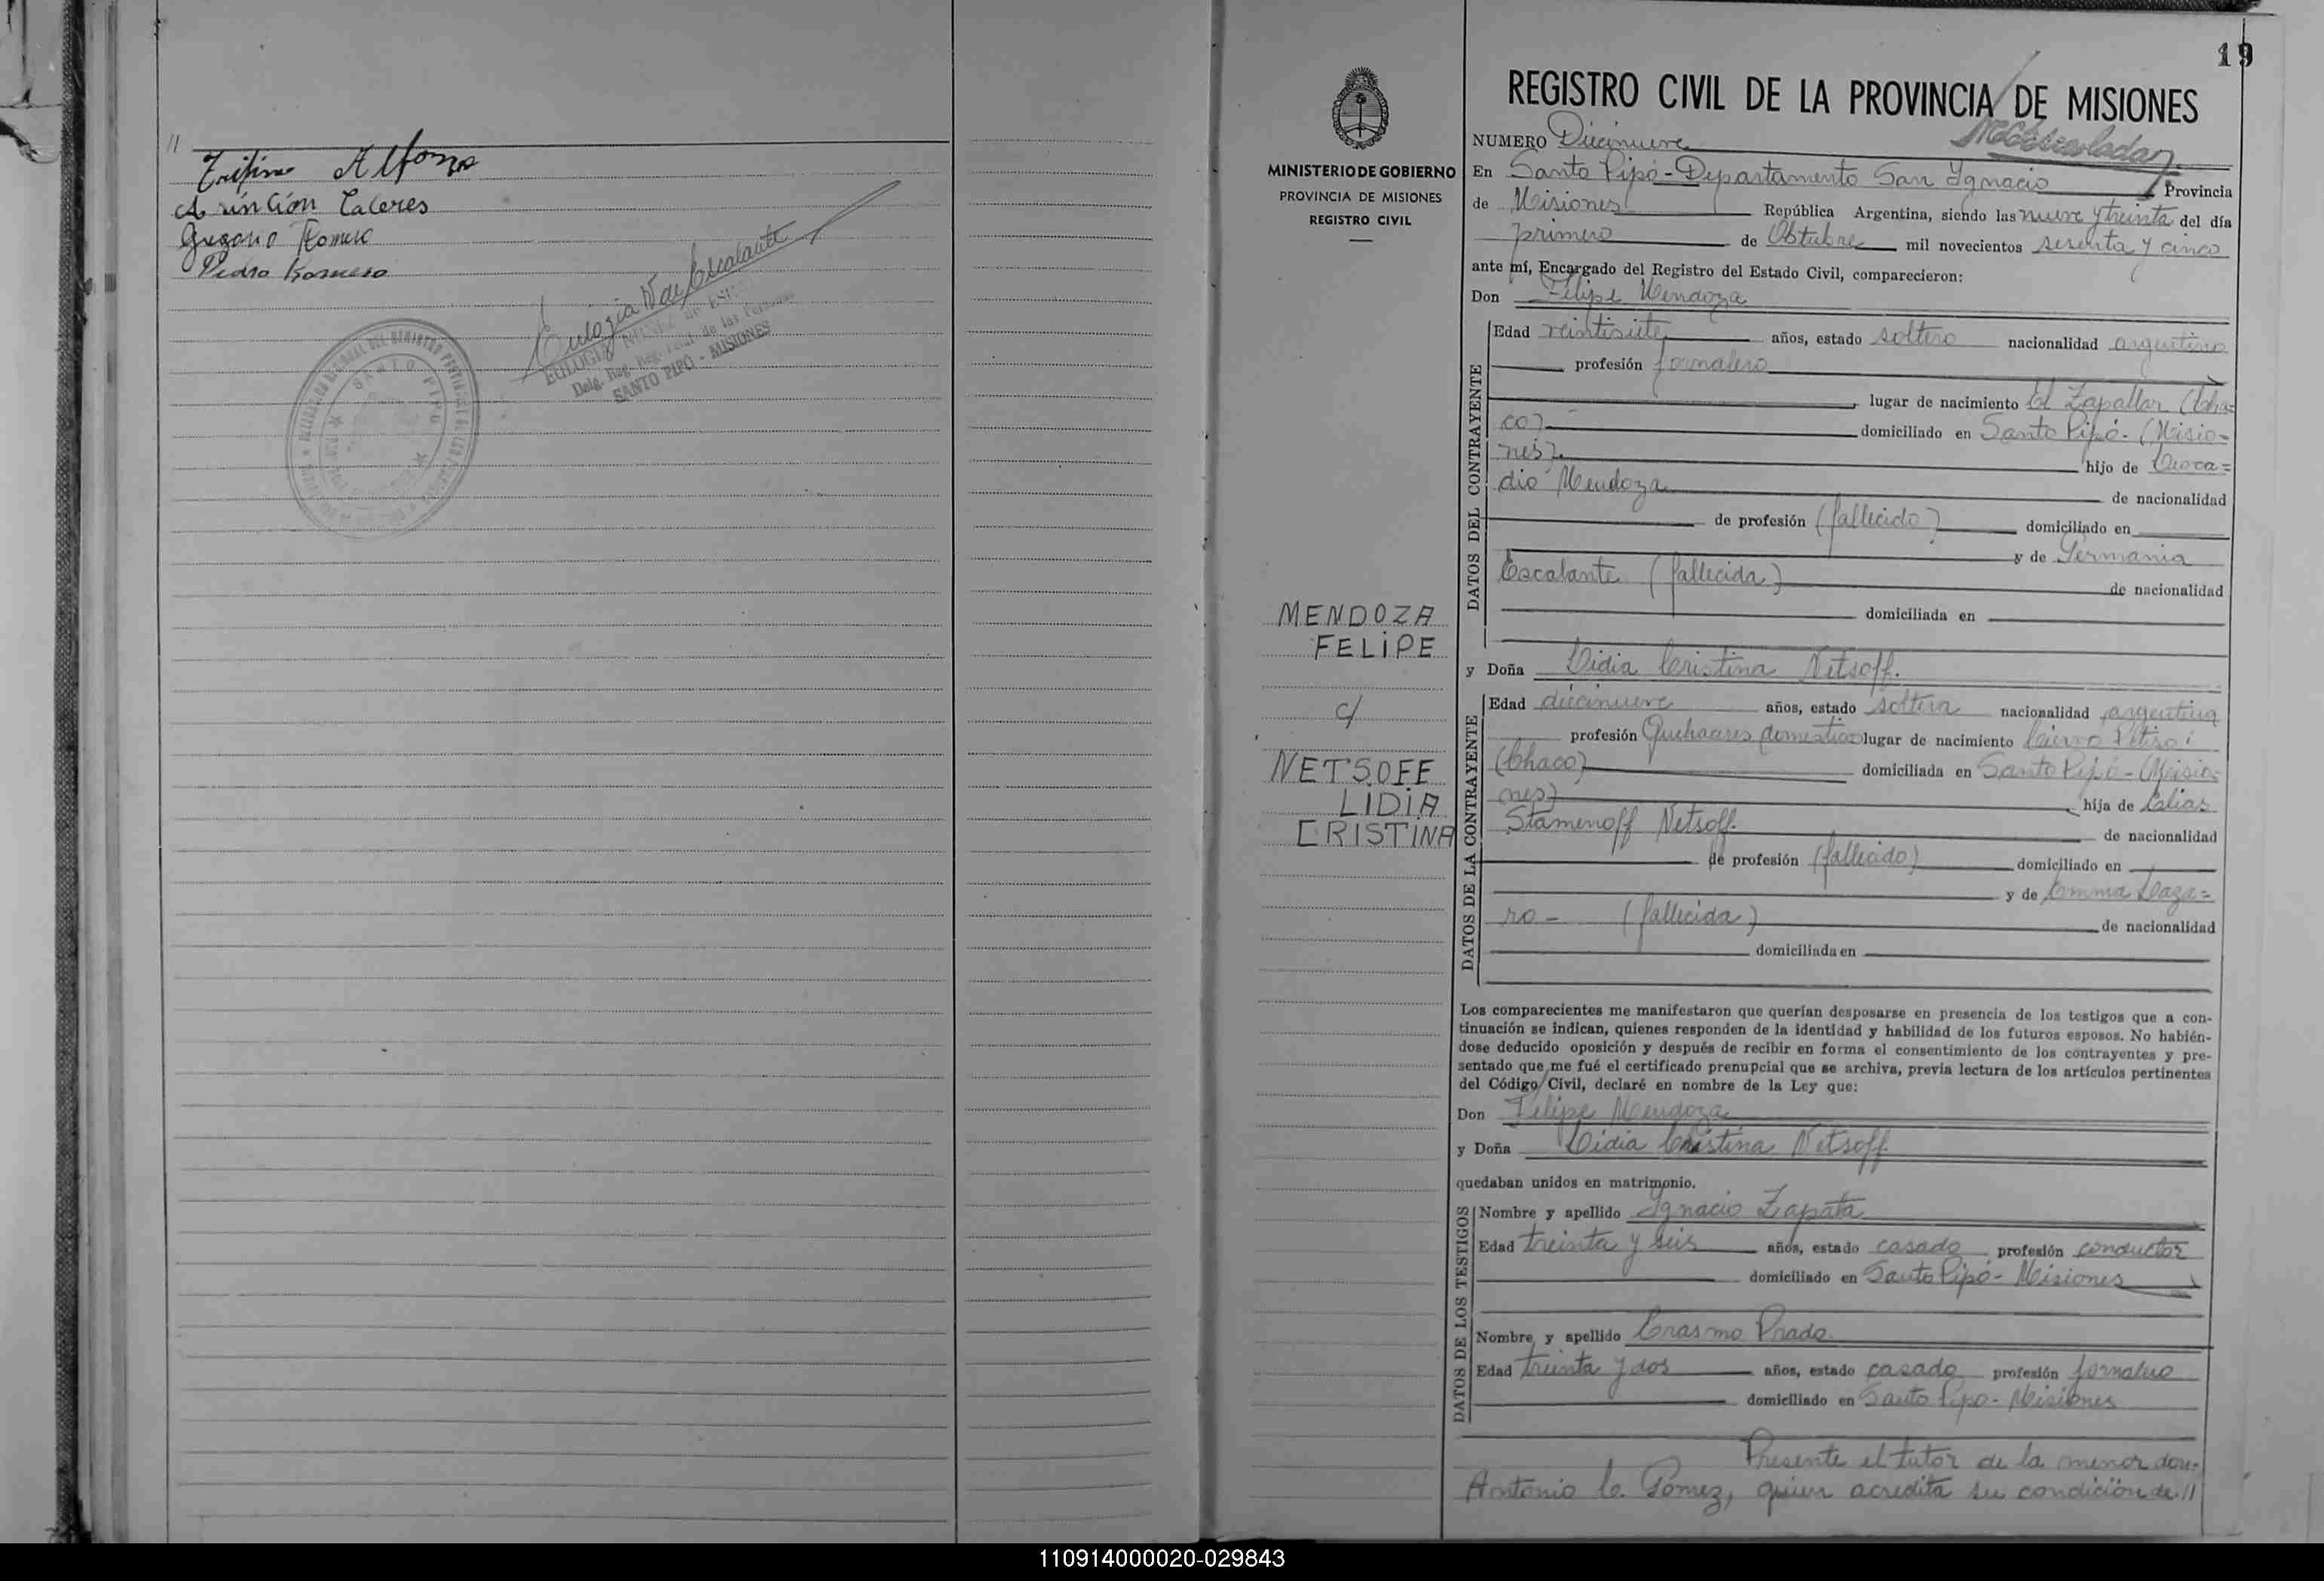 //
Trifino Alfonzo
Asunción Caceres
Gregorio Romero
Pedro Romero
Eulogia N de Escalante
EULOGIA NUÑEZ DE ESC
Delg. Reg. Prov. de las Personas
SANTO PIPO - MISIONES
SANTO PIPO
19
REGISTRO CIVIL DE LA PROVINCIA DE MISIONES
MINISTERIO DE GOBIERNO
PROVINCIA DE MISIONES
REGISTRO CIVIL
NUMERO Diecinueve
En Santo Pipó - Departamento San Ignacio Provincia
de Misiones República Argentina, siendo las nueve y treinta del día
primero de Octubre mil novecientos sesenta y cinco
ante mí, Encargado del Registro del Estado Civil, comparecieron:
Don Felipe Mendoza
DATOS DEL CONTRAYENTE
Edad veintisiete años, estado soltero nacionalidad argentino
profesión jornalero
lugar de nacimiento El Zapallar (Cha=
co) domiciliado en Santo Pipó - (Misio=
nes) hijo de Leoca=
dio Mendoza de nacionalidad
de profesión (fallecido) domiciliado en
y de Germania
Escalante (fallecida) de nacionalidad
domiciliada en
MENDOZA
FELIPE
c/
NETSOFF
LIDIA
CRISTINA
y Doña Lidia Cristina Netsoff.
DATOS DE LA CONTRAYENTE
Edad diecinueve años, estado soltera nacionalidad argentina
profesión Quehaceres domésticos lugar de nacimiento
(Chaco) domiciliada en Santo Pipó - (Misio=
nes) hija de Elias
Stamenoff Netsoff. de nacionalidad
de profesión (fallecido) domiciliado en
y de Emma Laza=
ro - (fallecida) de nacionalidad
domiciliada en
Los comparecientes me manifestaron que querían desposarse en presencia de los testigos que a con-
tinuación se indican, quienes responden de la identidad y habilidad de los futuros esposos. No habién-
dose deducido oposición y después de recibir en forma el consentimiento de los contrayentes y pre-
sentado que me fué el certificado prenupcial que se archiva, previa lectura de los artículos pertinentes
del Código Civil, declaré en nombre de la Ley que:
Don Felipe Mendoza
y Doña Lidia Cristina Netsoff.
quedaban unidos en matrimonio.
DATOS DE LOS TESTIGOS
Nombre y apellido Ignacio Zapata
Edad treinta y seis años, estado casado profesión conductor
domiciliado en Santo Pipó - Misiones
Nombre y apellido Erasmo Prado
Edad treinta y dos años, estado casado profesión jornalero
domiciliado en Santo Pipo - Misiones
Presente el tutor de la menor don
Antonio C. Gomez, quien acredita su condición de //
110914000020-029843